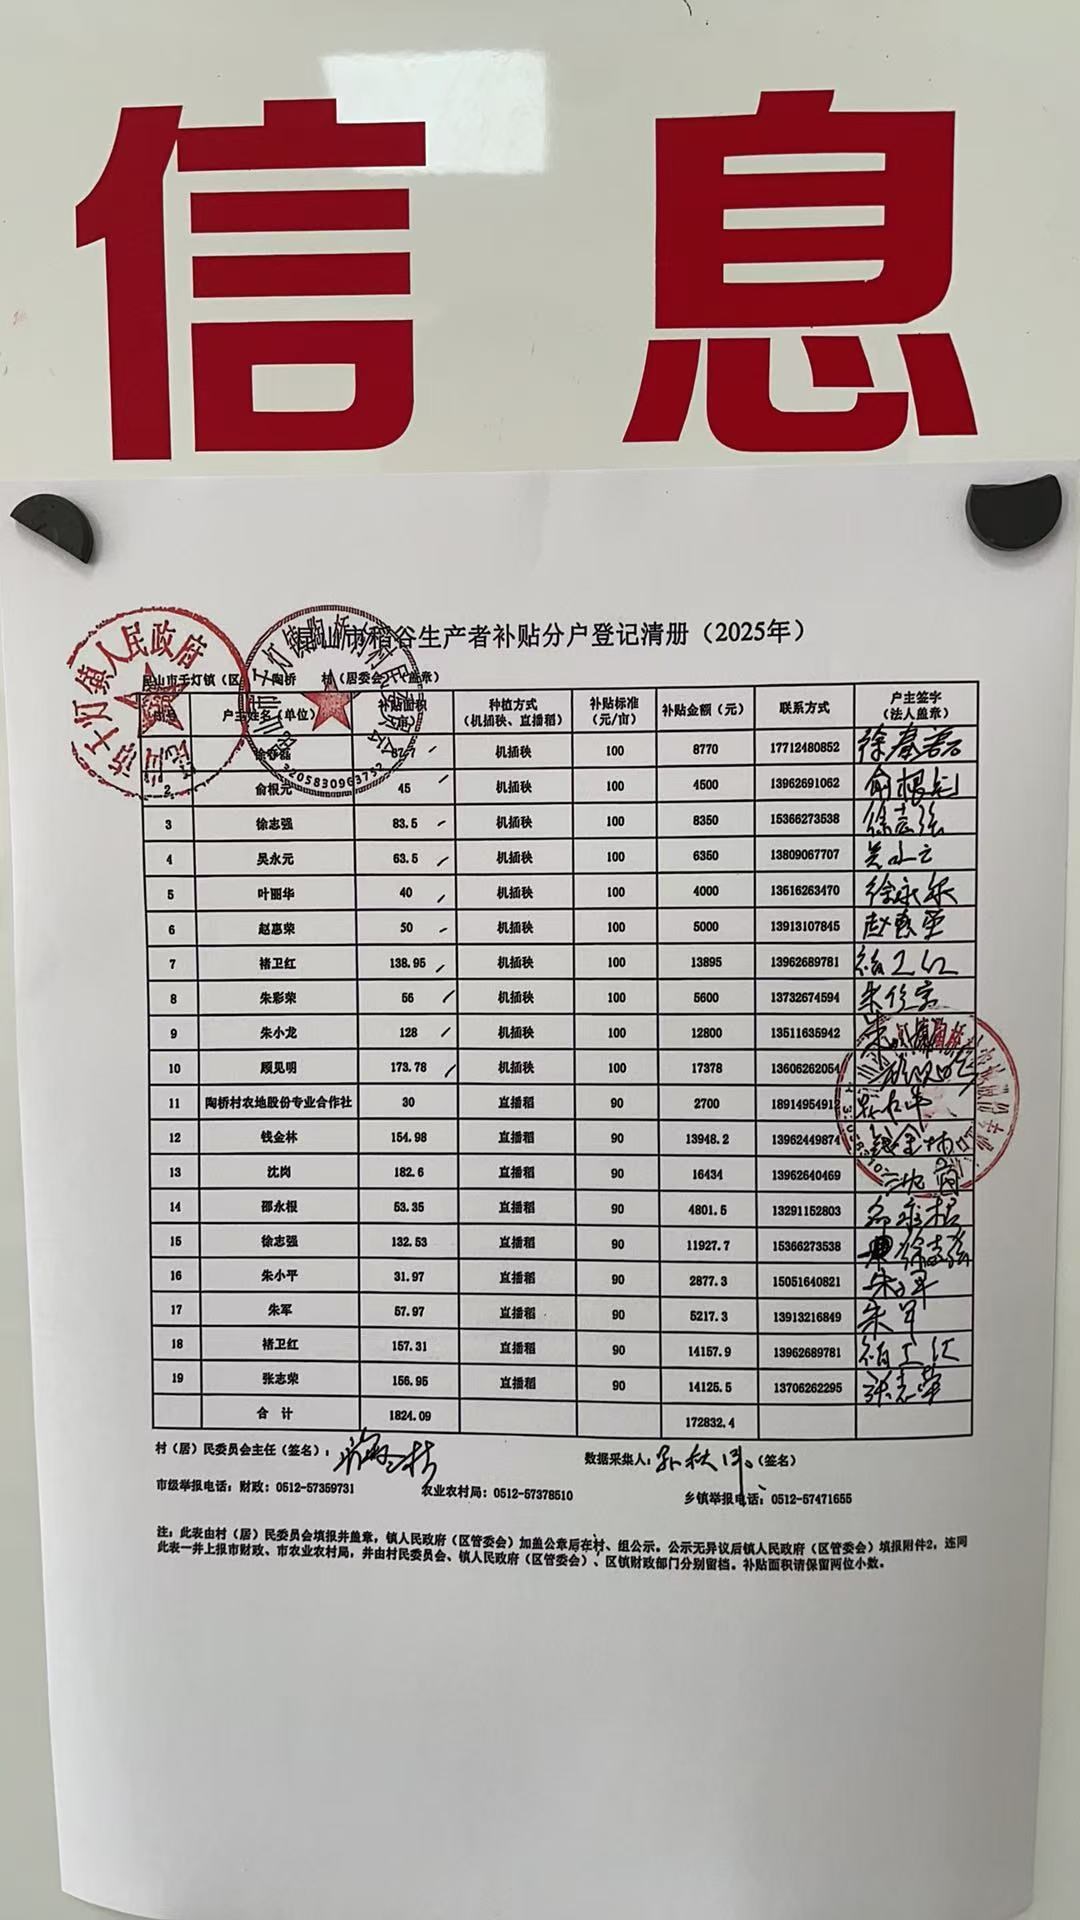 信息
昆山市稻谷生产者补贴分户登记清册（2025年）
昆山市千灯镇（区） 陶桥 村（居委会）（盖章）
序号 户主姓名（单位） 补贴面积（亩） 种植方式（机插秧、直播稻） 补贴标准（元/亩） 补贴金额（元） 联系方式 户主签字（法人盖章）
87.7 机插秧 100 8770 17712480852
2 俞根元 45 机插秧 100 4500 13962691062
3 徐志强 83.5 机插秧 100 8350 15366273538 徐志强
4 吴永元 63.5 机插秧 100 6350 13809067707
5 叶丽华 40 机插秧 100 4000 13616263470
6 赵惠荣 50 机插秧 100 5000 13913107845 赵惠荣
7 褚卫红 138.95 机插秧 100 13895 13962689781
8 朱彩荣 56 机插秧 100 5600 13732674594
9 朱小龙 128 机插秧 100 12800 13511635942
10 顾见明 173.78 机插秧 100 17378 13606262054
11 陶桥村农地股份专业合作社 30 直播稻 90 2700 18914954912
12 钱金林 154.98 直播稻 90 13948.2 13962449874
13 沈岗 182.6 直播稻 90 16434 13962640469
14 邵永根 53.35 直播稻 90 4801.5 13291152803
15 徐志强 132.53 直播稻 90 11927.7 15366273538 徐志强
16 朱小平 31.97 直播稻 90 2877.3 15051640821
17 朱军 57.97 直播稻 90 5217.3 13913216849 朱军
18 褚卫红 157.31 直播稻 90 14157.9 13962689781
19 张志荣 156.95 直播稻 90 14125.5 13706262295 张志荣
合 计 1824.09 172832.4
村（居）民委员会主任（签名）： 数据采集人： （签名）
市级举报电话：财政：0512-57359731 农业农村局：0512-57378510 乡镇举报电话：0512-57471655
注：此表由村（居）民委员会填报并盖章，镇人民政府（区管委会）加盖公章后在村、组公示。公示无异议后镇人民政府（区管委会）填报附件2，连同
此表一并上报市财政、市农业农村局，并由村民委员会、镇人民政府（区管委会）、区镇财政部门分别留档。补贴面积请保留两位小数。